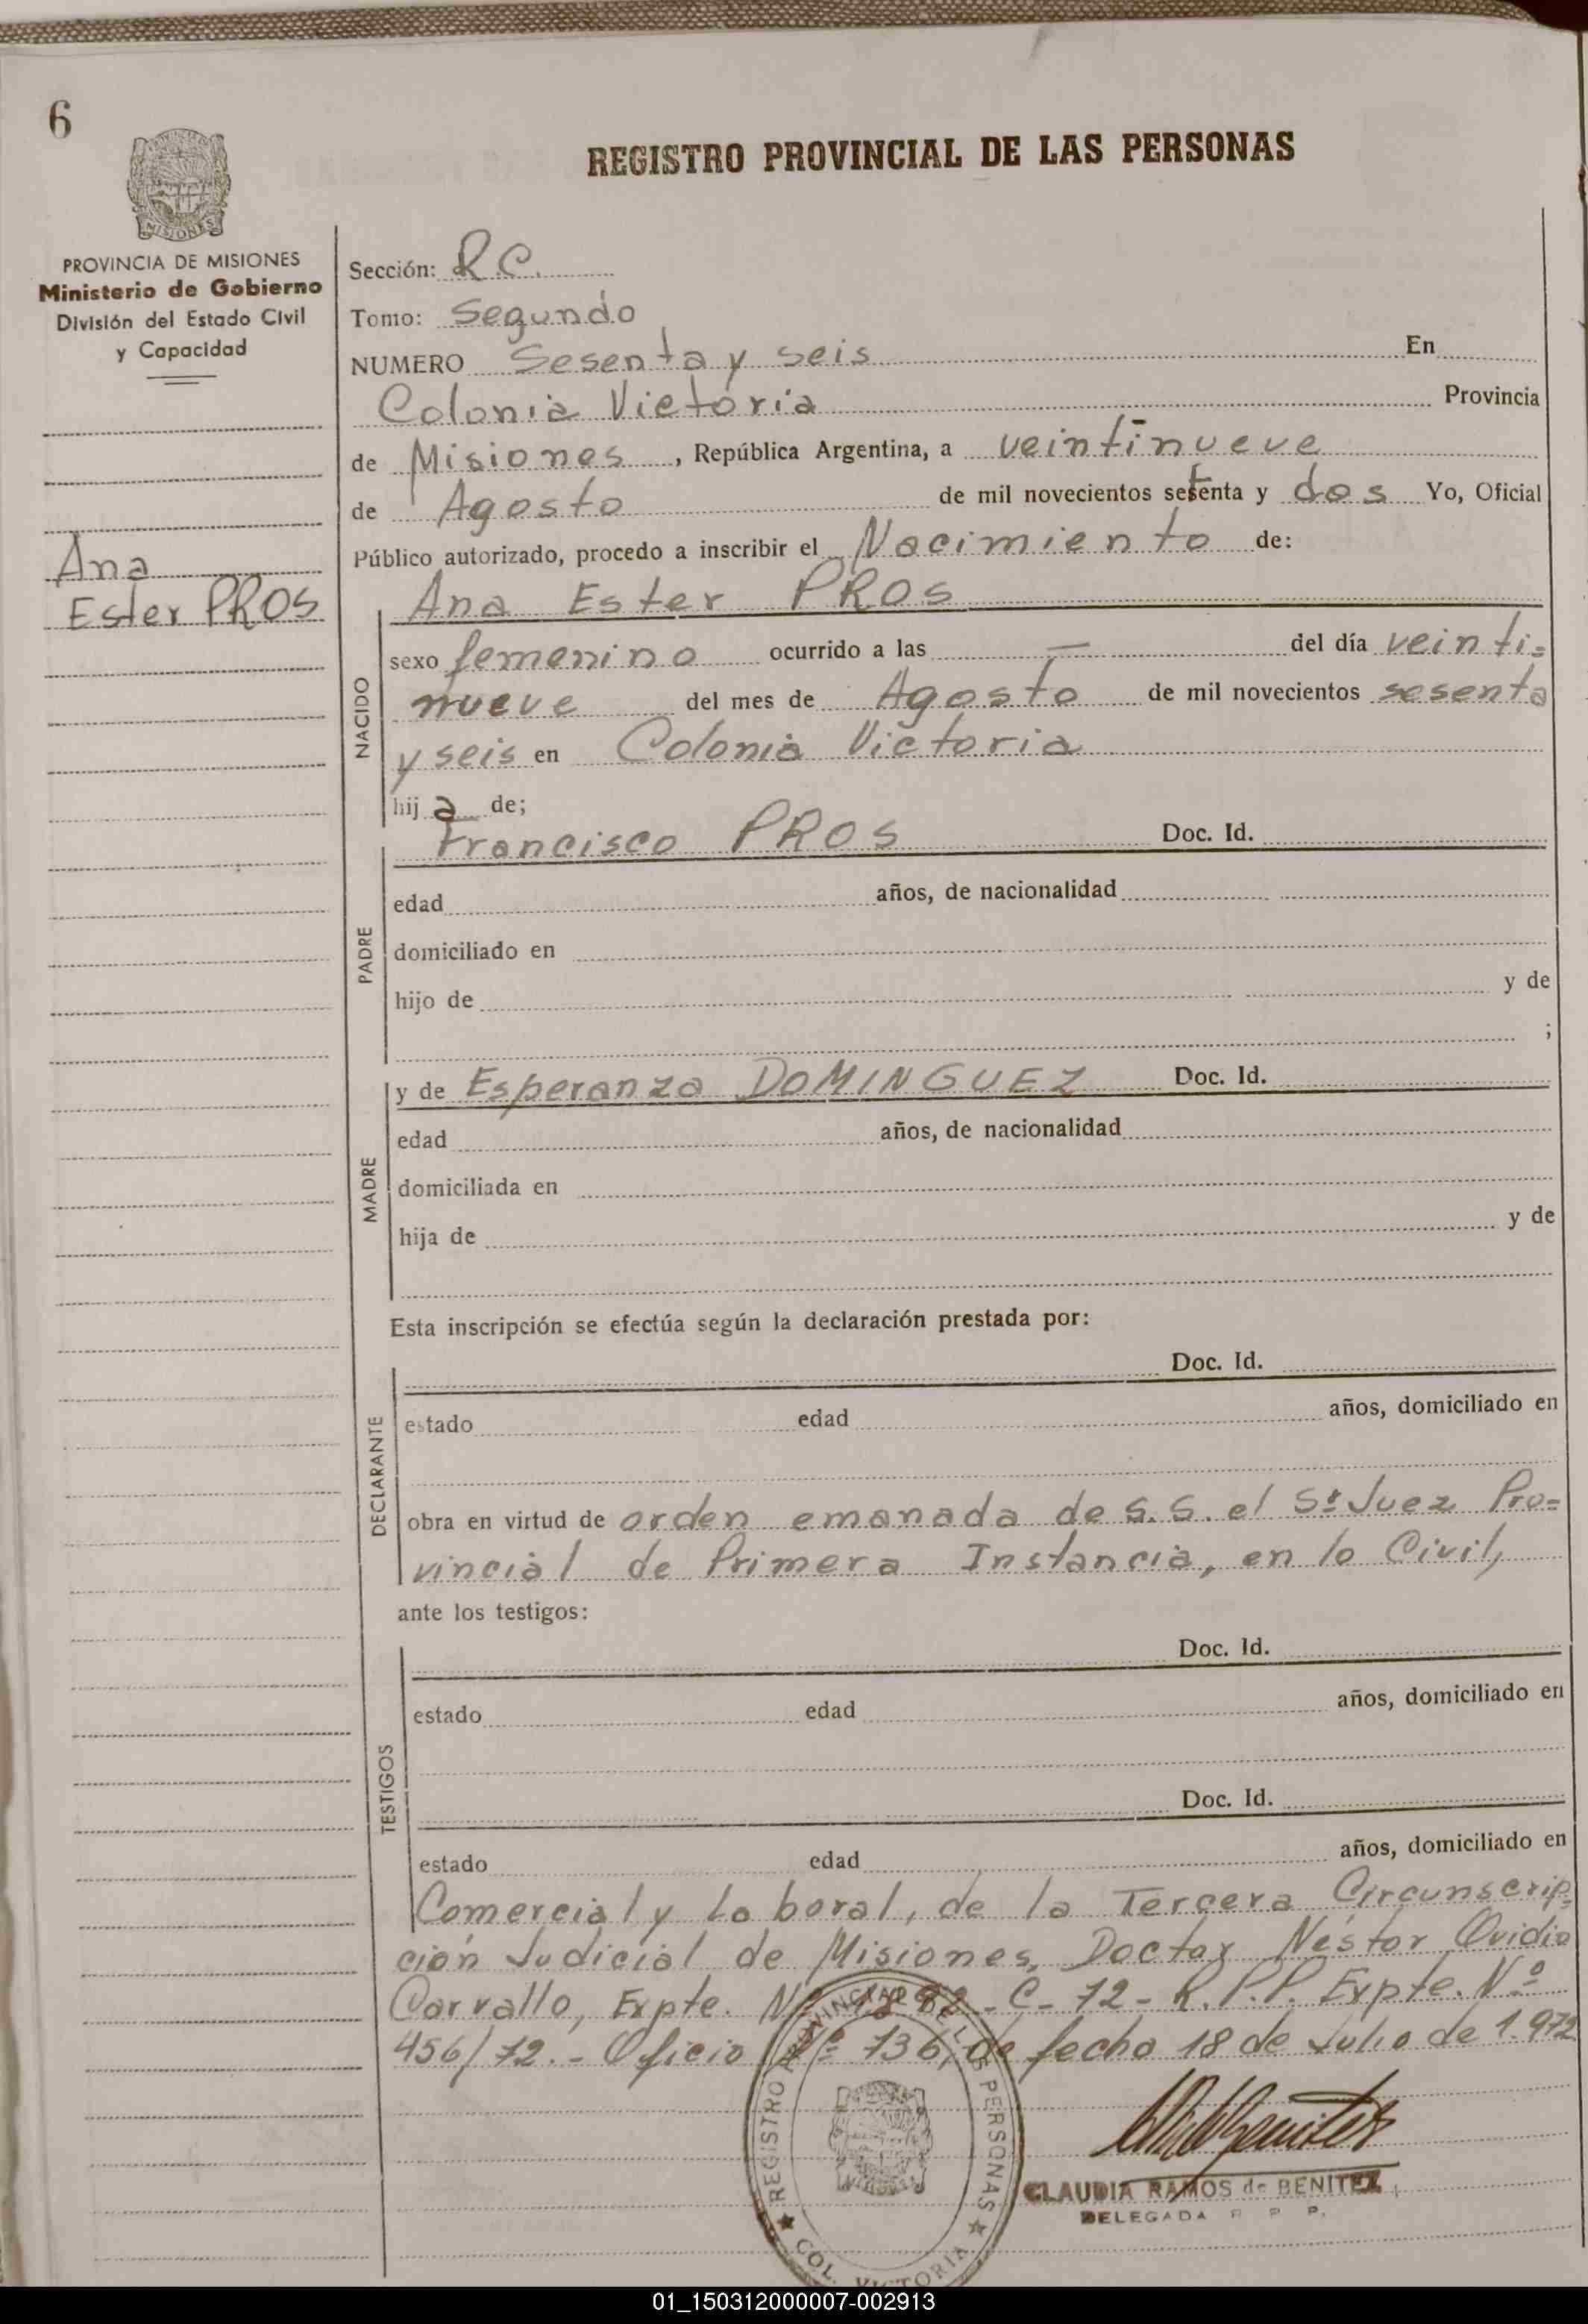 6
REGISTRO PROVINCIAL DE LAS PERSONAS
MISIONES
PROVINCIA DE MISIONES
Ministerio de Gobierno
División del Estado Civil
y Capacidad
Ana
Ester PROS
Sección: R.C.
Tomo: Segundo
NUMERO Sesenta y seis En
Colonia Victoria Provincia
de Misiones, República Argentina, a veintinueve
de Agosto de mil novecientos setenta y dos Yo, Oficial
Público autorizado, procedo a inscribir el Nacimiento de:
NACIDO
Ana Ester PROS
sexo femenino ocurrido a las — del día veinti=
nueve del mes de Agosto de mil novecientos sesenta
y seis en Colonia Victoria
hij a de;
PADRE
Francisco PROS Doc. Id.
edad años, de nacionalidad
domiciliado en
hijo de y de
;
MADRE
y de Esperanza DOMINGUEZ Doc. Id.
edad años, de nacionalidad
domiciliada en
hija de y de
Esta inscripción se efectúa según la declaración prestada por:
DECLARANTE
Doc. Id.
estado edad años, domiciliado en
obra en virtud de orden emanada de S.S. el Sr Juez Pro=
vincial de Primera Instancia, en lo Civil,
ante los testigos:
TESTIGOS
Doc. Id.
estado edad años, domiciliado en
Doc. Id.
estado edad años, domiciliado en
Comercial y Laboral, de la Tercera Circunscrip=
ción Judicial de Misiones, Doctor Néstor Ovidio
Carvallo, Expte. Nº 1882-C-72-R.P.P. Expte. Nº
456/72.- Oficio Nº 736, de fecha 18 de Julio de 1.972
REGISTRO PROVINCIAL DE LAS PERSONAS
COL. VICTORIA
CLAUDIA RAMOS de BENITEZ
DELEGADA R P P.
01_150312000007-002913